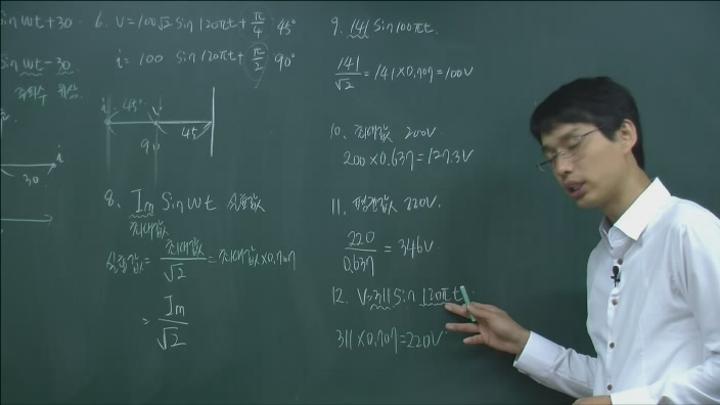 sin wt + 30
sin wt - 30
i
30
6. V = 100√2 sin 120πt + π/4 45°
i = 100 sin 120πt + π/2 90°
i 45° V
45
90
8. Im sin wt 실효값
최대값
실효값 = 최대값/√2 = 최대값 × 0.707
= Im/√2
9. 141 sin 100πt.
141/√2 = 141 × 0.707 = 100V
10. 최대값 200V
200 × 0.637 = 127.3V
11. 평균값 220V.
220/0.637 = 346V
12. V = 311 sin 120πt
311 × 0.707 = 220V